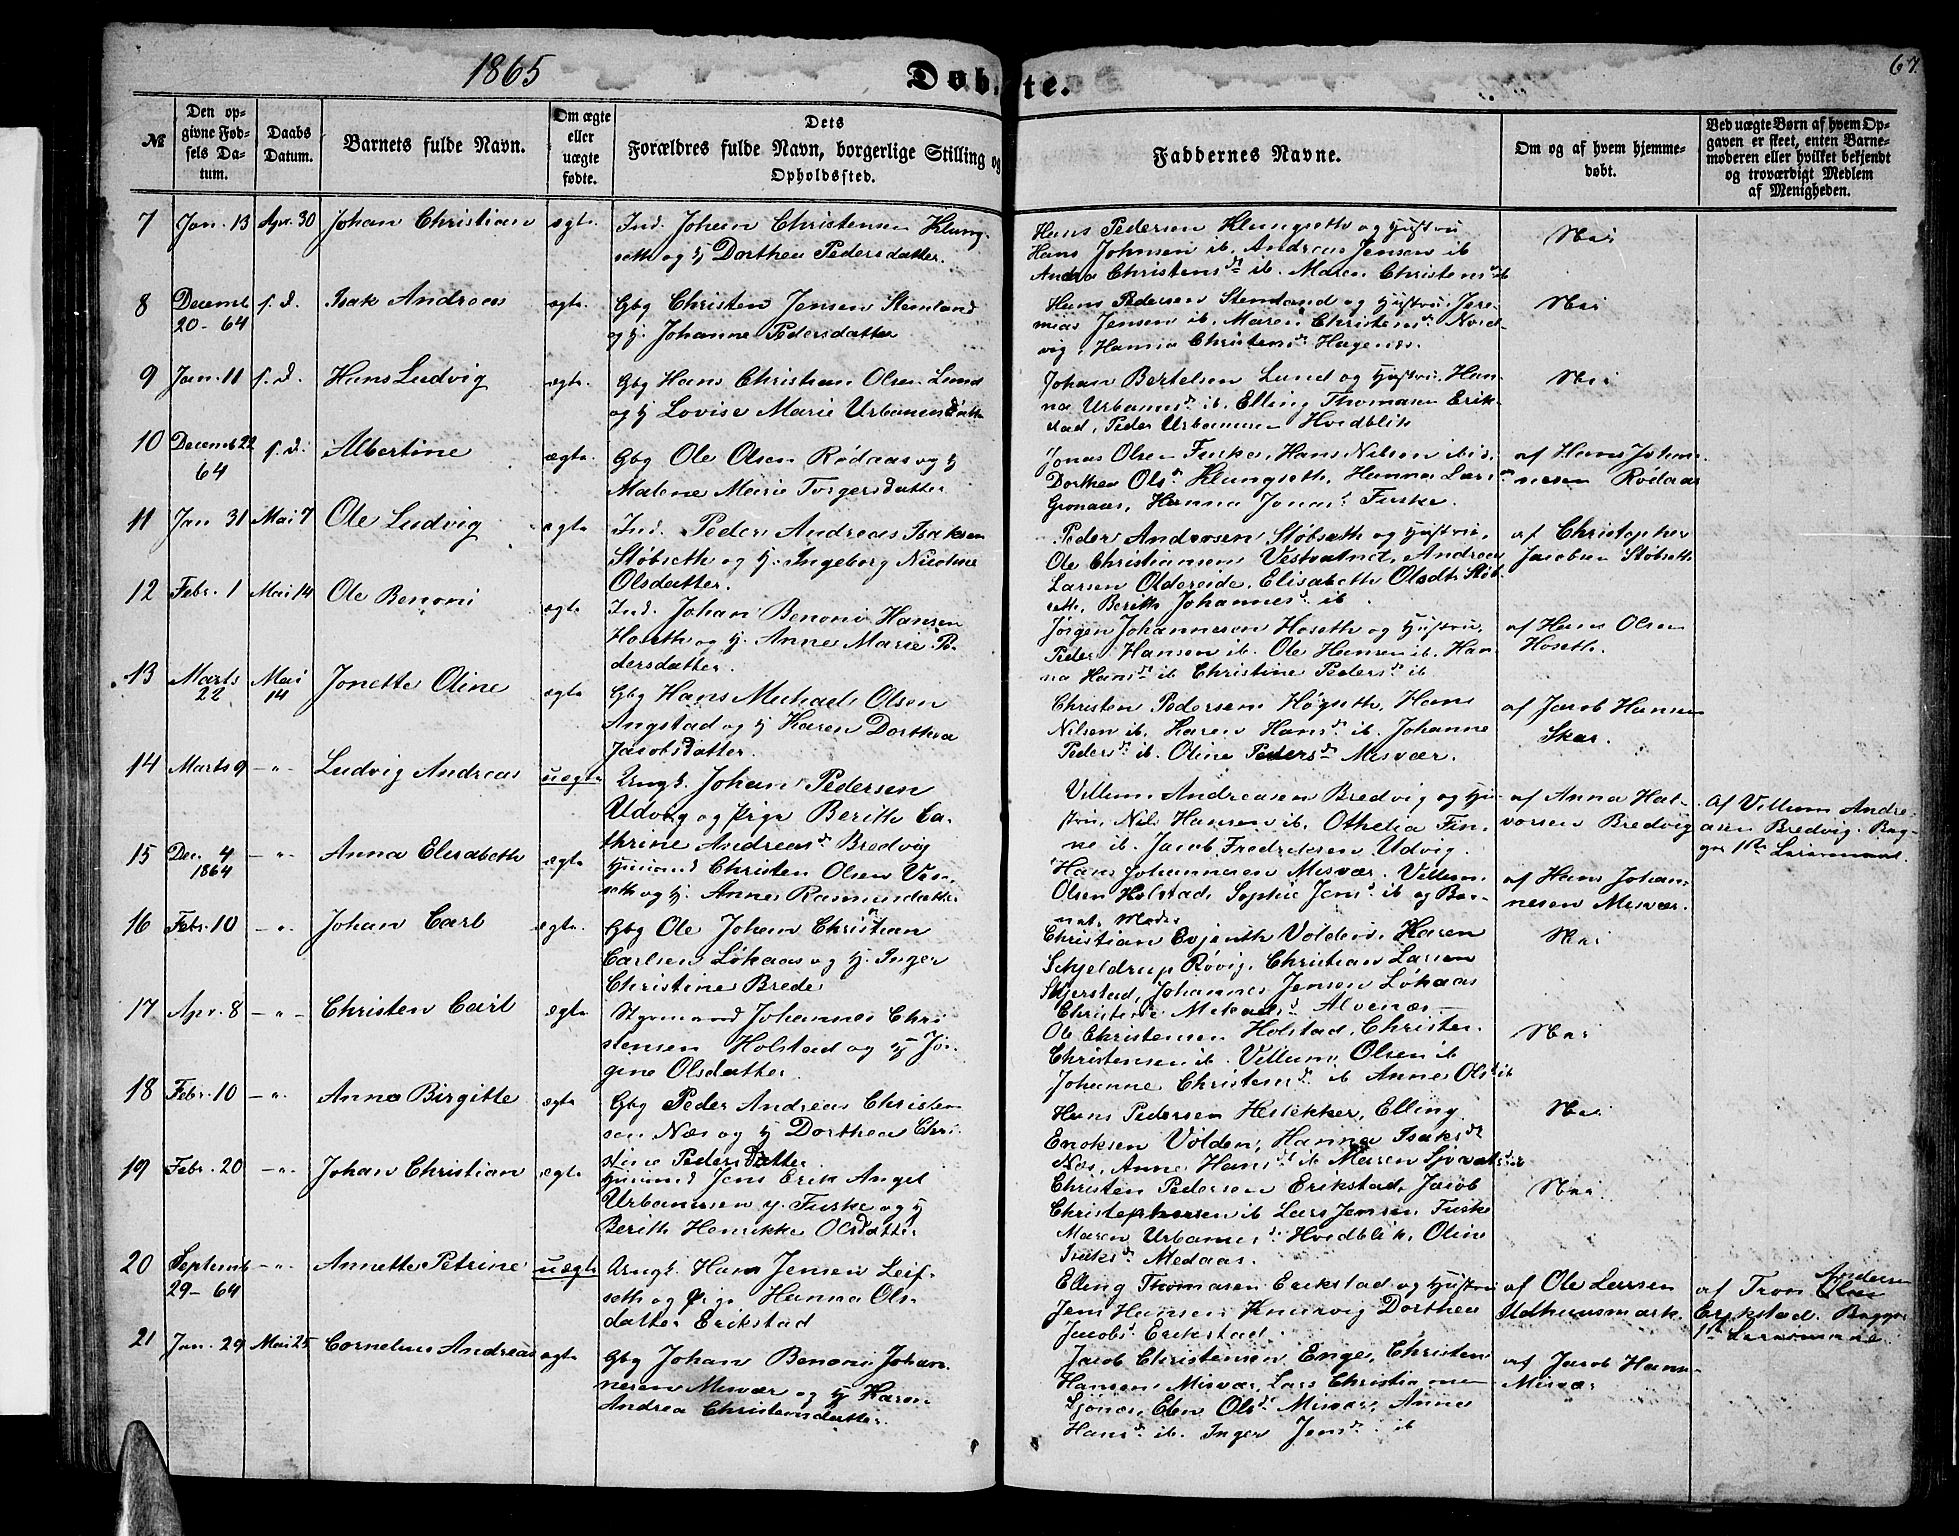 1865
Døbte.
67.
№
Den op-
givne Fød-
sels Da-
tum.
Daabs
Datum.
Barnets fulde Navn.
Om ægte
eller
uægte
fødte.
Dets
Forældres fulde Navn, borgerlige Stilling og
Opholdssted.
Faddernes Navne.
Om og af hvem hjemme-
døbt.
Ved uægte Børn af hvem Op-
gaven er skeet, enten Barne-
moderen eller hvilket bekjendt
og troværdigt Medlem
af Menigheden.
7 Jan. 13 Apr. 30 Johan Christian ægte.
Ind. Johan Christensen Klung-
seth og hj Dorthea Pedersdatter.
Hans Pedersen Klungseth og Hustru
Hans Johnsen ib, Andreas Jensen ib
Andrea Christensd. ib. Maren Christensd. ib
Nei
8 Decemb 20-64 s. d. Isak Andreas ægte.
Gbg Christen Jensen Stemland
og hj. Johanne Pedersdatter
Hans Pedersen Stemland og Hustru. Jere-
mias Jensen ib. Maren Christensd. Nord-
vig, Hansia Christensd. Hagenæs.
Nei
9 Jan. 11 s. d. Hans Ludvig ægte.
Gbg Hans Christian Olsen Lund
og hj Lovise Marie Urbanusdatter
Johan Bertelsen Lund og Hustru. Han-
na Urbanusd. ib. Elling Thomasen Erik-
stad, Peder Urbanusen Hvedblik
Nei
10 Decemb 22 64 s. d. Albertine ægte.
Gbg Ole Olsen Rødaas og hj
Malene Marie Torgersdatter
Jonas Olsen Fuske, Hans Nilsen ibid.
Dorthea Olsd. Klungseth, Hanna Larsd.
Grønaas, Hanna Jonasd. Fuske.
af Hans Johan-
nesen Rødaas
11 Jan 31 Mai 7 Ole Ludvig ægte
Ind. Peder Andreas Isaksen
Støbseth og hj. Ingeborg Nicoline
Olsdatter.
Peder Andersen Støbseth og Hustru,
Ole Christiansen Vestvatnet, Andreas
Larsen Oldereide, Elisabeth Olsdt. Støb-
seth, Berith Johannesd. ib
af Christopher
Jacobsen Støbseth
12 Febr. 1 Mai 14 Ole Benoni ægte
Ind. Johan Benoni Hansen
Hoseth og hj. Anne Marie Pe-
dersdatter.
Jørgen Johannesen Hoseth og Hustru.
Peder Hansen ib. Ole Hansen ib. Han-
na Hansd. ib Christine Pedersd. ib
af Hans Olsen
Hoseth.
13 Marts 22 Mai 14 Jonette Oline ægte
Gbg Hans Michael Olsen
Angstad og hj Karen Dorthea
Jacobsdatter.
Christen Pedersen Høgseth, Hans
Nilsen ib. Karen Hansd. ib. Johanne
Pedersd. ib. Oline Pedersd. Misvær.
af Jacob Hansen
Skar.
14 Marts 9 - " - Ludvig Andreas uægte
Ungk. Johan Pedersen
Udvig og Pige Berith Ca-
thrine Andreasd. Bredvig
Villum Andreasen Bredvig og Hu-
stru, Nils Hansen ib. Othelia Fin-
ne ib. Jacob Fredriksen Udvig.
af Anna Hal-
vorsen Bredvig
Af Villum Andre-
asen Bredvig. Beg-
ges 1ste Leiermaal.
15 Dec. 4 1864 - " - Anna Elisabeth ægte
Husmand Christen Olsen Ves-
seth og hj. Anne Rasmusdatter
Hans Johannesen Misvær. Villum
Olsen Holstad, Sophie Jensd. ib og Bar-
nets Moder
af Hans Johan-
nesen Misvær.
16 Febr. 10 - " - Johan Carl ægte.
Gbg Ole Johan Christian
Carlsen Løkaas og hj. Inger
Christine Brede
Christian Evjenth Volden. Karen
Schjeldrup Røvig. Christian Larsen
Skjerstad, Johannes Jensen Løkaas
Christine Mikaelsd. Alvenæs
Nei
17 Apr. 8 - " - Christen Carl ægte
Styrmand Johannes Chri-
stensen Holstad og hj Jør-
gine Olsdatter
Ole Christensen Holstad, Christen
Christensen ib. Villum Olsen ib
Johanne Christensd. ib Anne Olsd. ib
Nei
18 Febr. 10 - " - Anna Birgitte ægte
Gbg Peder Andreas Christen-
sen Næs og hj Dorthea Chri-
stine Pedersdatter
Hans Pedersen Heslekker, Elling
Enoksen Volden, Hanna Isaksd.
Næs, Anne Hansd. ib Maren
Nei
19 Febr. 20 - " - Johan Christian ægte
Husmand Jens Erik Angel
Urbanusen y. Fuske og hj
Berith Henrikke Olsdatter
Christen Pedersen Erikstad, Jacob
Christophersen ib Lars Jensen Fuske
Maren Urbanusd. Hvedblik, Oline
Isaksd. Medaas.
Nei
20 Septemb 29-64 - " - Annette Petrine uægte
Ungk. Hans Jensen Leif-
seth og Pige Hanna Ols-
datter Erikstad
Elling Thomasen Erikstad og Hustru
Jens Hansen Knarvig Dorthea
Jacobsd. Erikstad.
af Ole Larsen
Udhuusmark.
af Tron Andersen
Erikstad. Begges
1ste Leiermaal
21 Jan. 29 Mai 25 Cornelius Andreas ægte
Gbg Johan Benoni Johan-
nesen Misvær og hj Karen
Andrea Christensdatter.
Jacob Christensen Enge, Christen
Hansen Misvær, Lars Christiansen
Ljønes, Elen Olsd. Misvær, Anne
Hansd. ib. Inger Jensd. ib
af Jacob Hansen
Misvær